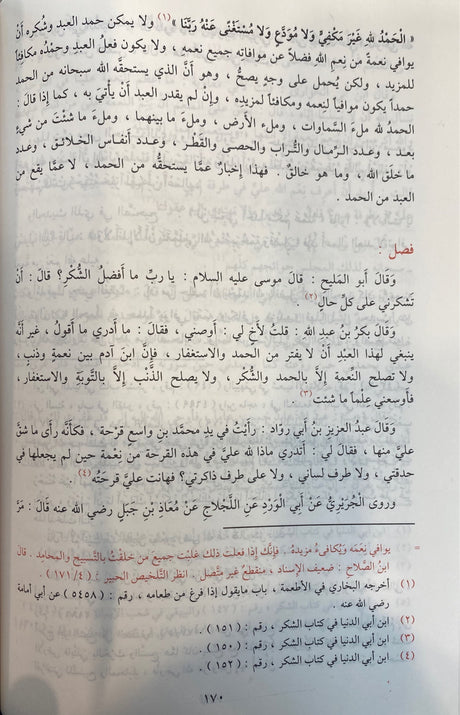 « الْحَمْدُ للهِ غَيْرَ مَكْفِيٍّ وَلا مُوَدَّعٍ وَلا مُسْتَغْنًى عَنْهُ رَبَّنَا »(١) ولا يمكن حمد العبد وشُكره أنْ
يوافي نعمةً من نِعَمِ الله فضلاً عن موافاته جميع نعمه ، ولا يكون فعلُ العبدِ وحمدُه مكافئاً
للمزيد ، ولكن يُحمل على وجهٍ يصحُّ ، وهو أنَّ الذي يستحقُّه الله سبحانه من الحمد
حمداً يكون موافياً لنِعمه ومكافئاً لمزيده ، وإنْ لم يقدر العبد أنْ يأتيَ به ، كما إذا قالَ :
الحمدُ لله ملءَ السَّماوات ، وملء الأرض ، وملءَ ما بينهما ، وملءَ ما شئتَ من شيءٍ
بعد ، وعدد الرِّمال والتُّراب والحصى والقَطْر ، وعدد أنفاس الخلائق ، وعدد
ما خلَق الله ، وما هو خالقٌ . فهذا إخبارٌ عمَّا يستحقُّه من الحمد ، لا عمَّا يقع من
العبد من الحمد .
فصل :
وقَالَ أبو المليح : قالَ موسى عليه السلام : يا ربِّ ما أفضلُ الشُّكْرِ؟ قالَ : أنْ
تَشكرني على كلِّ حالٍ(٢)
وقَالَ بكرُ بنُ عبد الله : قلتُ لأخٍ لي : أوصني ، فقالَ : ما أدري ما أقولُ ، غير أنَّه
ينبغي لهذا العبْدِ أنْ لا يفتر من الحمد والاستغفار ، فإنَّ ابنَ آدم بين نعمةٍ وذنبٍ ،
ولا تصلح النِّعمة إلاَّ بالحمد والشُّكْر ، ولا يصلح الذَّنْب إلاَّ بالتَّوبةِ والاستغفار ،
فأوسعني عِلْماً ما شئت(٣) .
وقَالَ عبدُ العزيزِ بنُ أبي روّاد : رأيْتُ في يدِ محمّدِ بنِ واسعٍ قرْحة ، فكأنَّه رأى ما شقَّ
عليَّ منها ، فقالَ لي : أتدري ماذا لله عليَّ في هذه القرحة من نِعْمة حين لم يجعلها في
حدقتي ، ولا طرف لساني ، ولا على طرف ذاكرتي؟ فهانت عليَّ قرحتُه(٤) .
وروى الجُرَيْرِيُّ عَنْ أبي الوَرْدِ عَنِ اللَّجْلاجِ عَنْ مُعَاذِ بْنِ جَبَلٍ رضي الله عنه قَالَ : مَرَّ
= يوافي نِعَمَه وَيُكافىءُ مزيدَهُ . فإِنَّك إذا فعلتَ ذلك غلبْتَ جميع من خلقْتُ بالتَّسبيح والمحامد . قالَ
ابنُ الصَّلاح : ضعيف الإسناد ، منقطعٌ غير متَّصل . انظر التَّلخيصَ الحبير : ( ٤/ ١٧١ ) .
(١) أخرجه البخاري في الأطعمة ، باب مايقول إذا فرغ من طعامه ، رقم : ( ٥٤٥٨ ) عن أبي أمامة
رضي الله عنه .
(٢) ابن أبي الدنيا في كتاب الشكر ، رقم : ( ١٥١ ) .
(٣) ابن أبي الدنيا في كتاب الشكر ، رقم : ( ١٥٠ ) .
(٤) ابن أبي الدنيا في كتاب الشكر ، رقم : ( ١٥٢ ) .
١٧٠